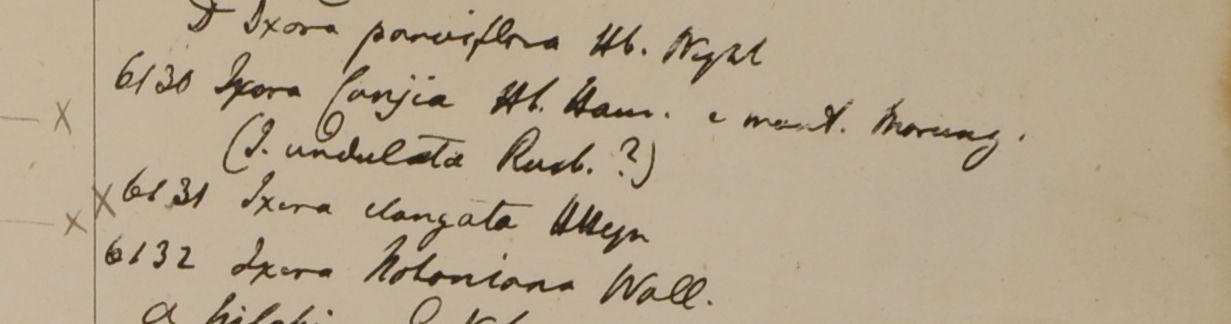 D Ixora parviflora Hb. Wight
6130 Ixora Conjia Hb. Ham. e mont. Morung.
(I. undulata Roxb. ?)
6131 Ixora elongata HHeyn
6132 Ixora Notoniana Wall.